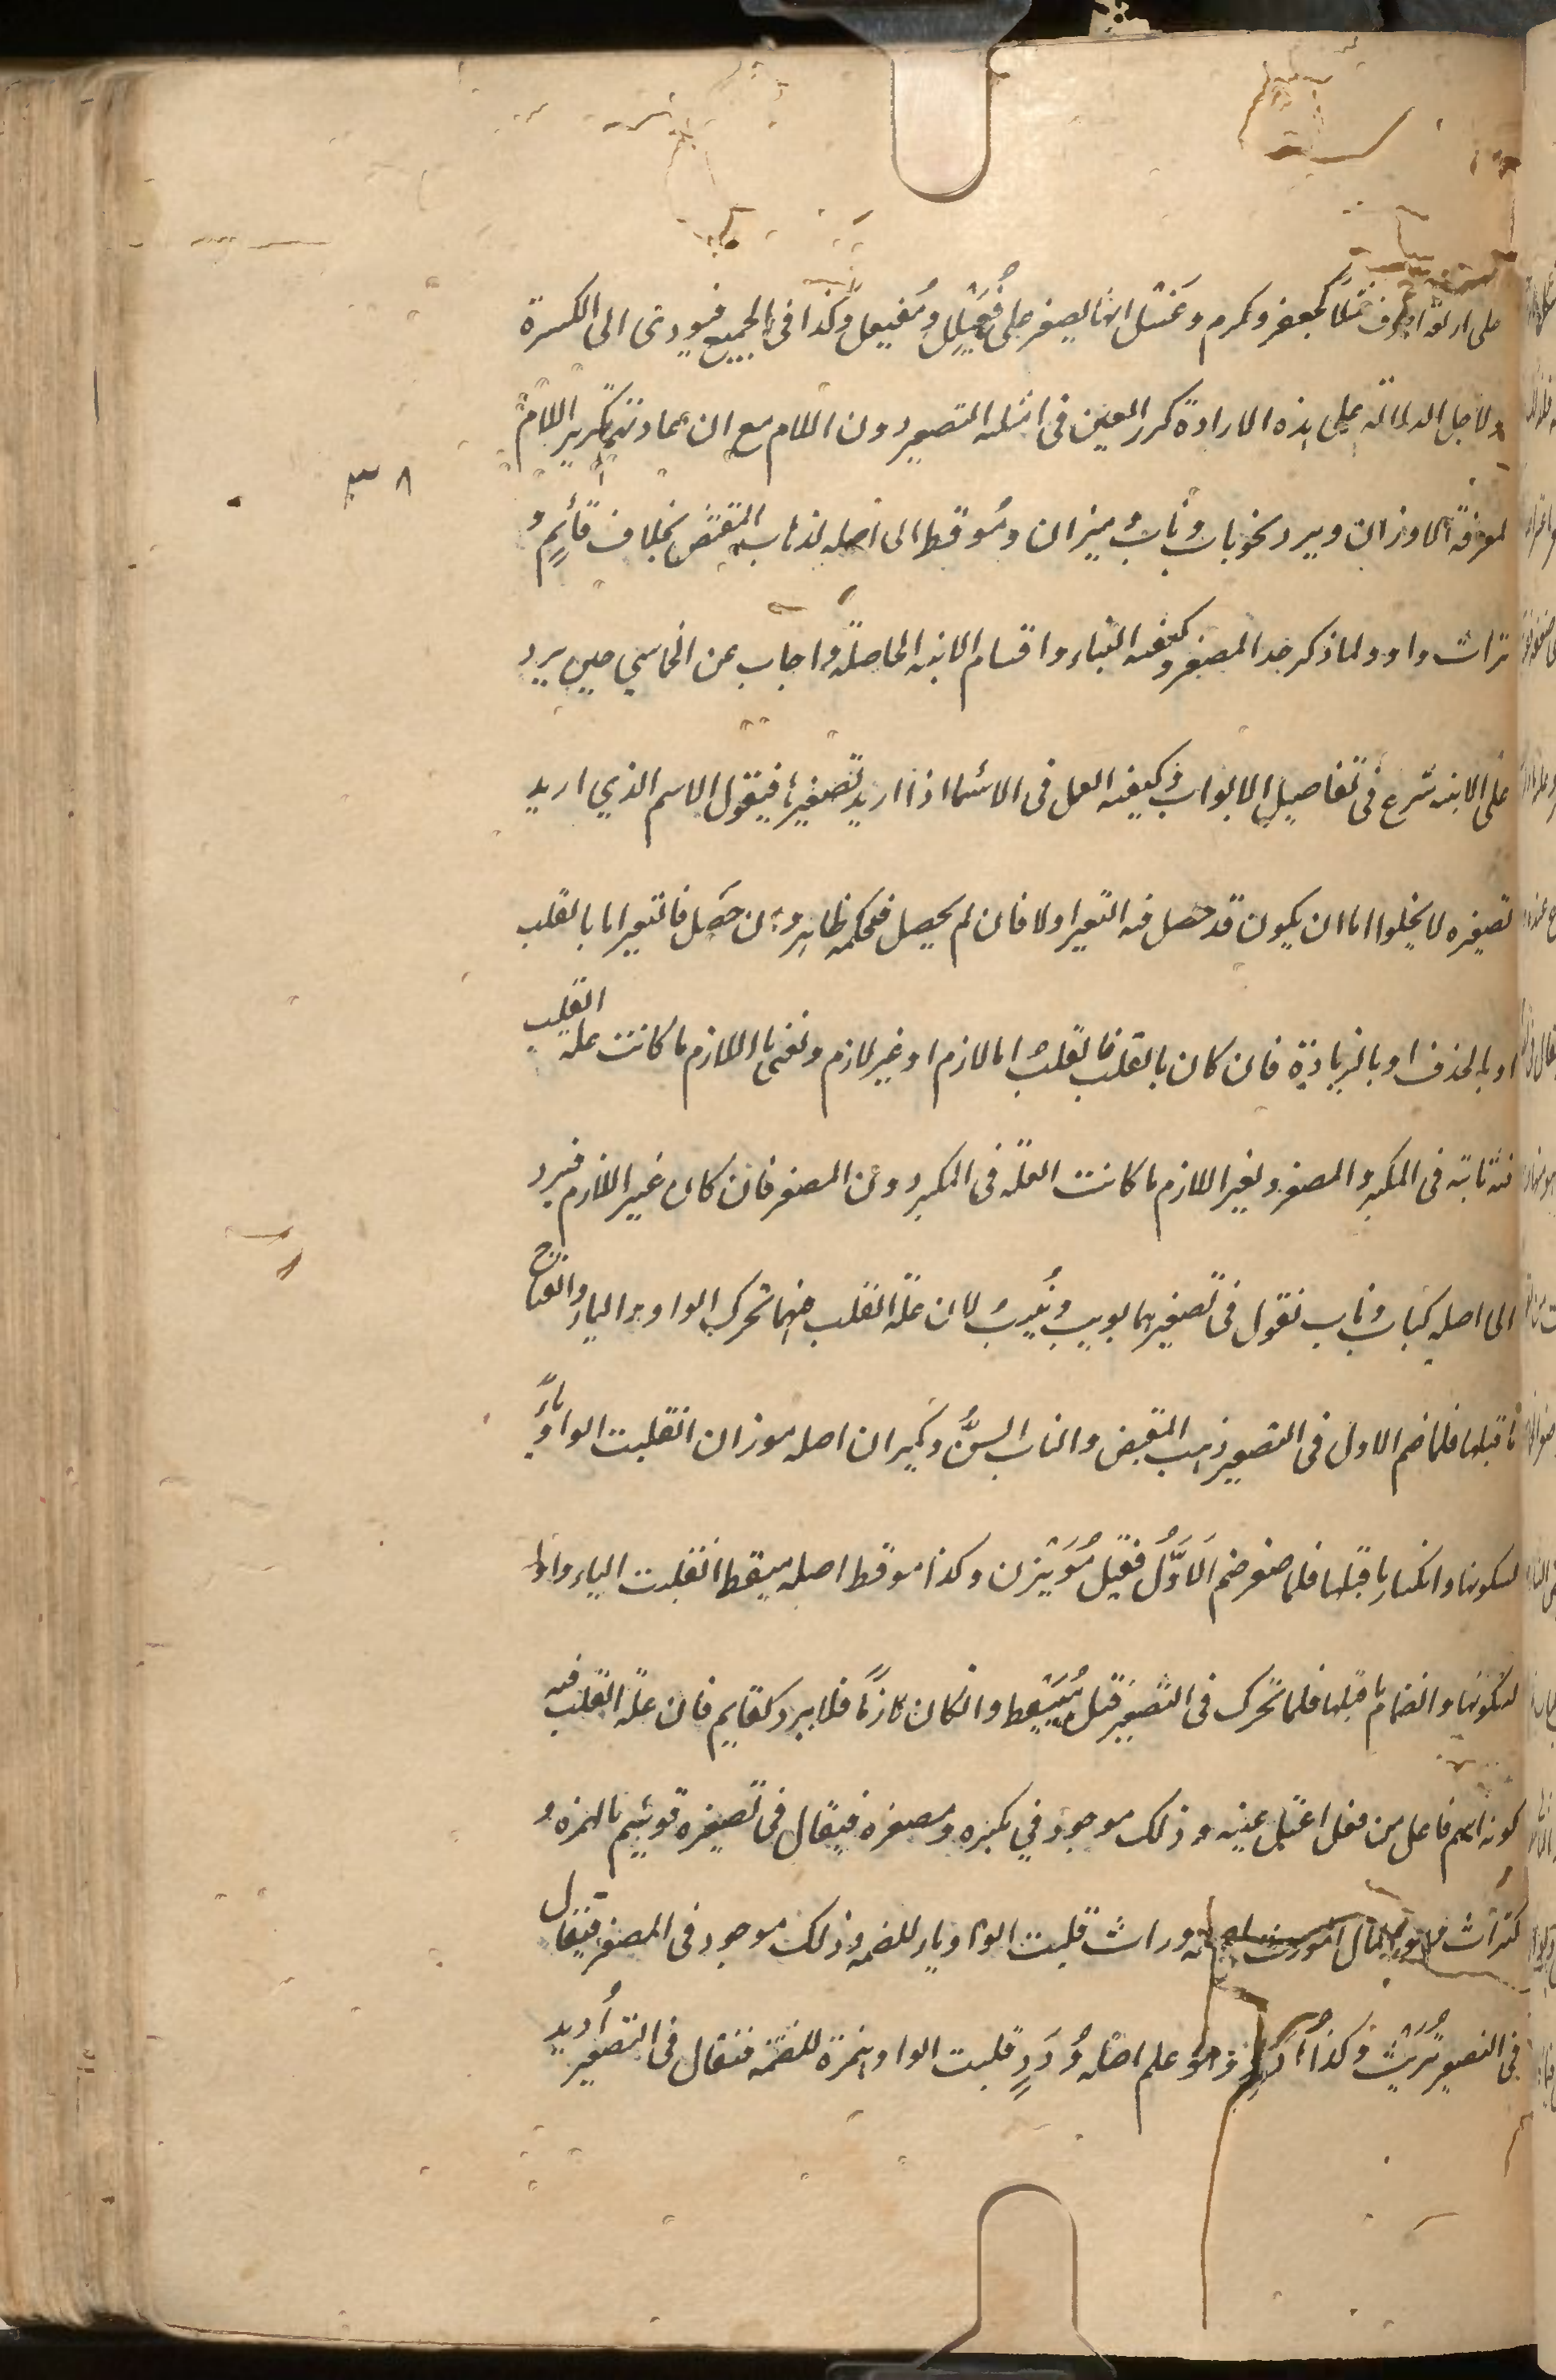 على اربعة احرف مثلا كجعفر ومكرم وعنسل انما يصغر على فُعَيْلِل ومُفَيعل وكذا فى الجميع فيودى الى الكسرة
ولاجل الدلالة على هذه الارادة كرر العين فى امثلة التصغير دون اللام مع ان عمادتهم تكرير اللام
لمعرفة الاوزان ويرد نحو باب وناب وميزان ومُوقظ الى اصله لذهاب المقتضى بخلاف قائمٍ و
تراث وادد لما ذكر حد المصغر وكيفية البناء واقسام الابنية الحاصلة واجاب عن الخماسي حين يرد
على الابنية شرع فى تفاصيل الابواب وكيفية العمل فى الاسما اذا اريد تصغيرها فيقول الاسم الذي اريد
تصغيره لا يخلوا اما ان يكون قد حصل فيه التغير اولا فان لم يحصل فحكمه ظاهر وان حصل فالتغير اما بالقلب
او بالحذف او بالزيادة فان كان بالقلب فالقلب اما لازم او غير لازم ونعنى باللازم ما كانت علة القلب
فيه ثابتة فى المكبر والمصغر وبغير اللازم ما كانت العلة فى المكبر دون المصغر فان كان غير اللازم فيرد
الى اصله كباب وناب تقول فى تصغيرهما بويب ونُييب لان علة القلب فيهما تحرك الواو والياء وانفتاح
ما قبلها فلما ضم الاول فى التصغير ذهب المقتضى والناب السنُّ وكميزان اصله موزان انقلبت الواو ياءً
لسكونها وانكسار ما قبلها فلما صغر ضم الاَوَّلُ فقيل مُوَيْزن وكذا موقظ اصله ميقظ انقلبت الياء واوا
لسكونها وانضمام ما قبلها فلما تحرك فى التصغير قيل مُيَيْقظ وان كان لازمًا فلا يرد كقايم فان علة القلب فيه
كونه اسم فاعل من فعل اعتل عينه وذلك موجود في مكبره ومصغره فيقال فى تصغيره قوئيم بالهمزة و
كتراث وهو المال الموروث اصله وراث قلبت الواو تاء للضمة وذلك موجود فى المصغر فيقال
فى التصغير تُرَيْث وكذا اُدَد وهو علم اصله وُدَدٍ قلبت الواو همزة للضمة فيقال فى التصغير اُديد
٣٨